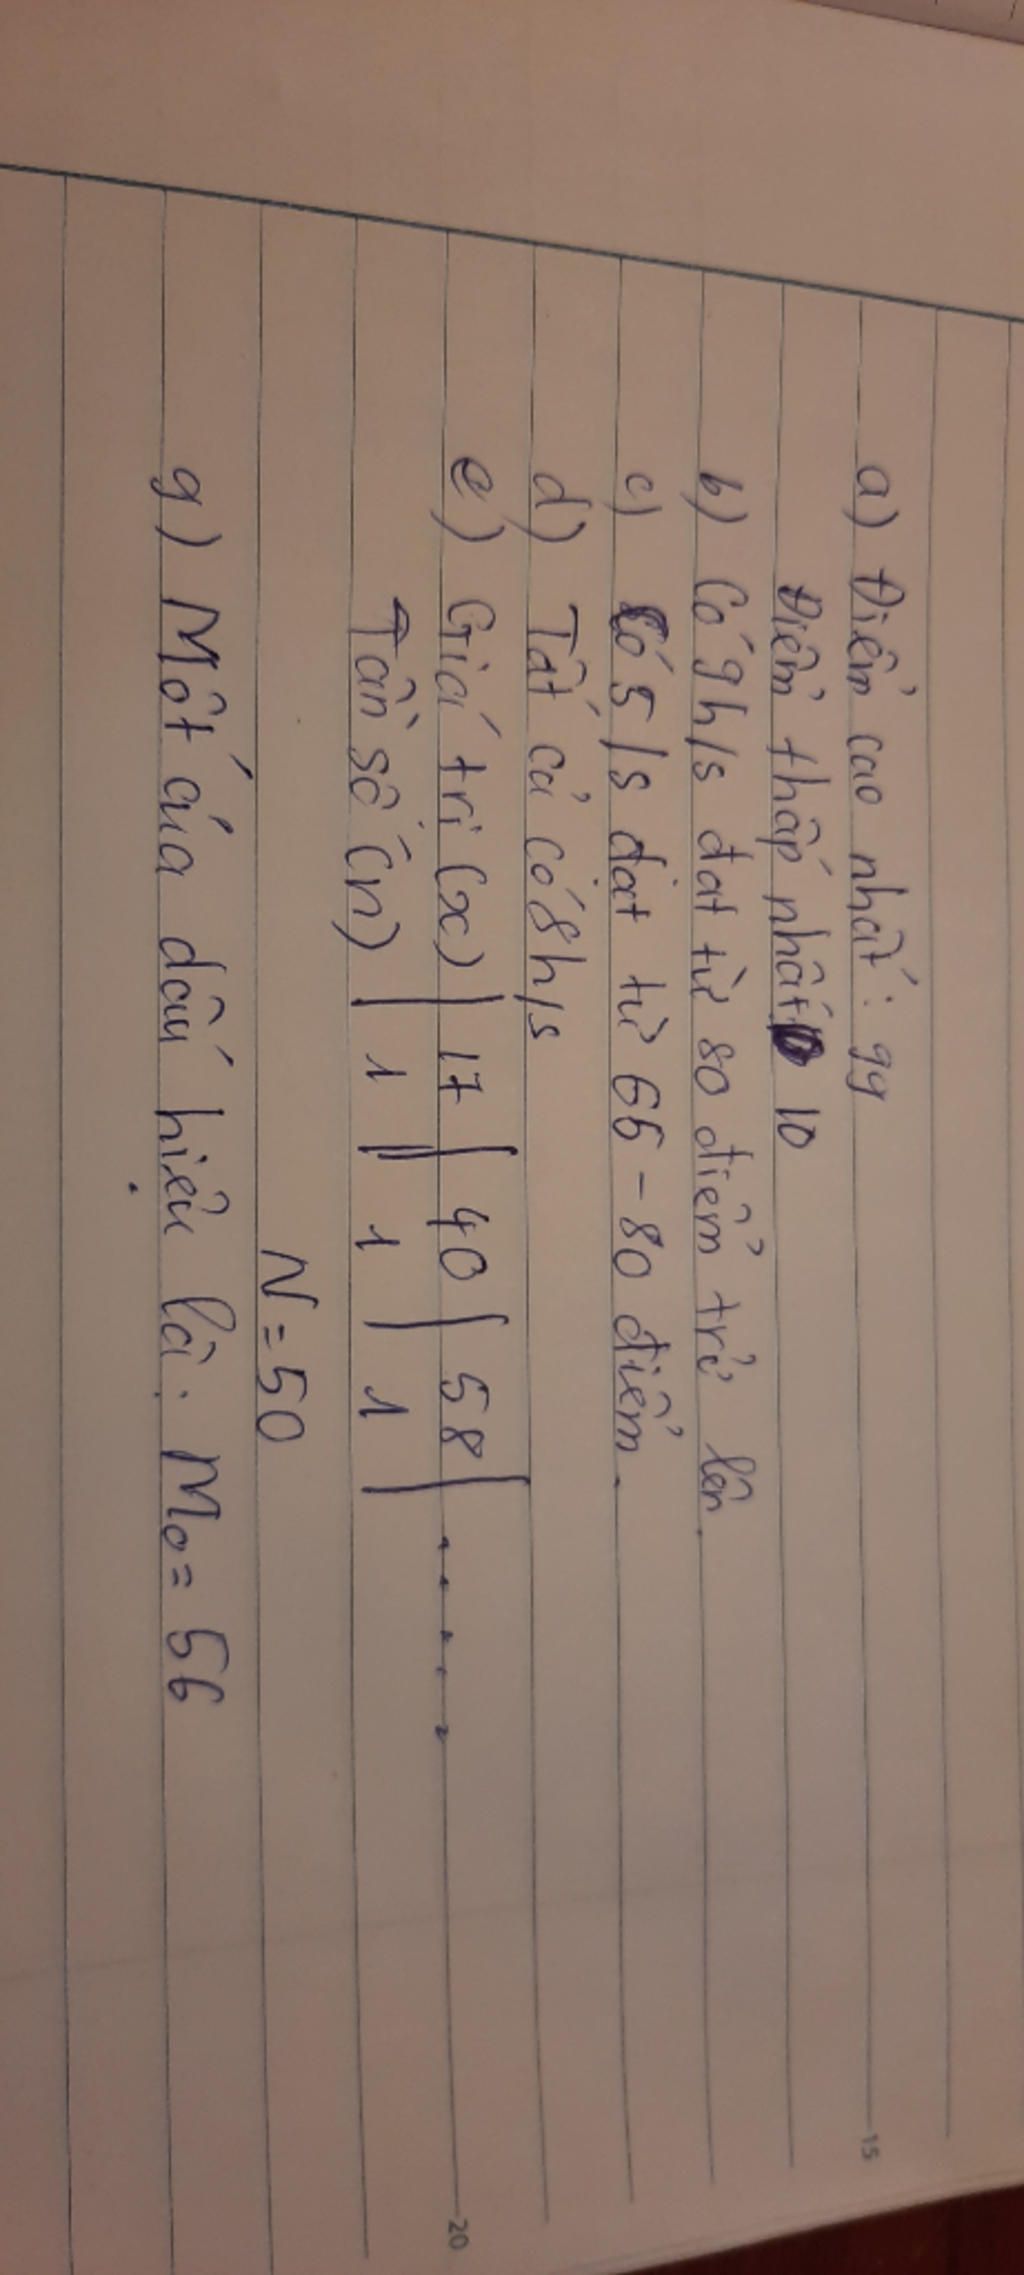 a) Điểm cao nhất : 99
Điểm thấp nhất 10
b) Có 9 h/s đạt từ 80 điểm trở lên.
c) Có 5 /s đạt từ 66 - 80 điểm.
d) Tất cả có 8 h/s
e) Giá trị (x) | 17 | 40 | 58 | .....
Tần số (n) | 1 | 1 | 1 |
N = 50
g) Mốt của dấu hiệu là : Mo = 56
15
20